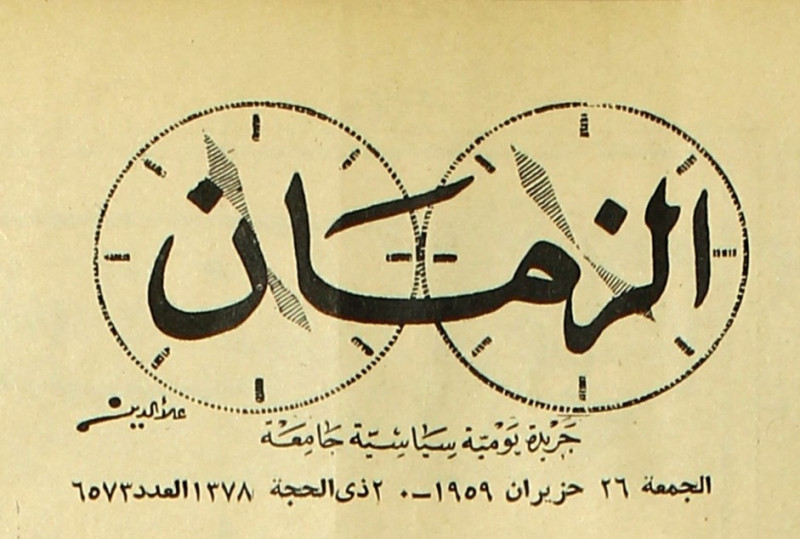 الزمان
علاء الدين
جريدة يومية سياسية جامعة
الجمعة ٢٦ حزيران ١٩٥٩ – ٢٠ ذى الحجة ١٣٧٨ العدد ٦٥٧٣